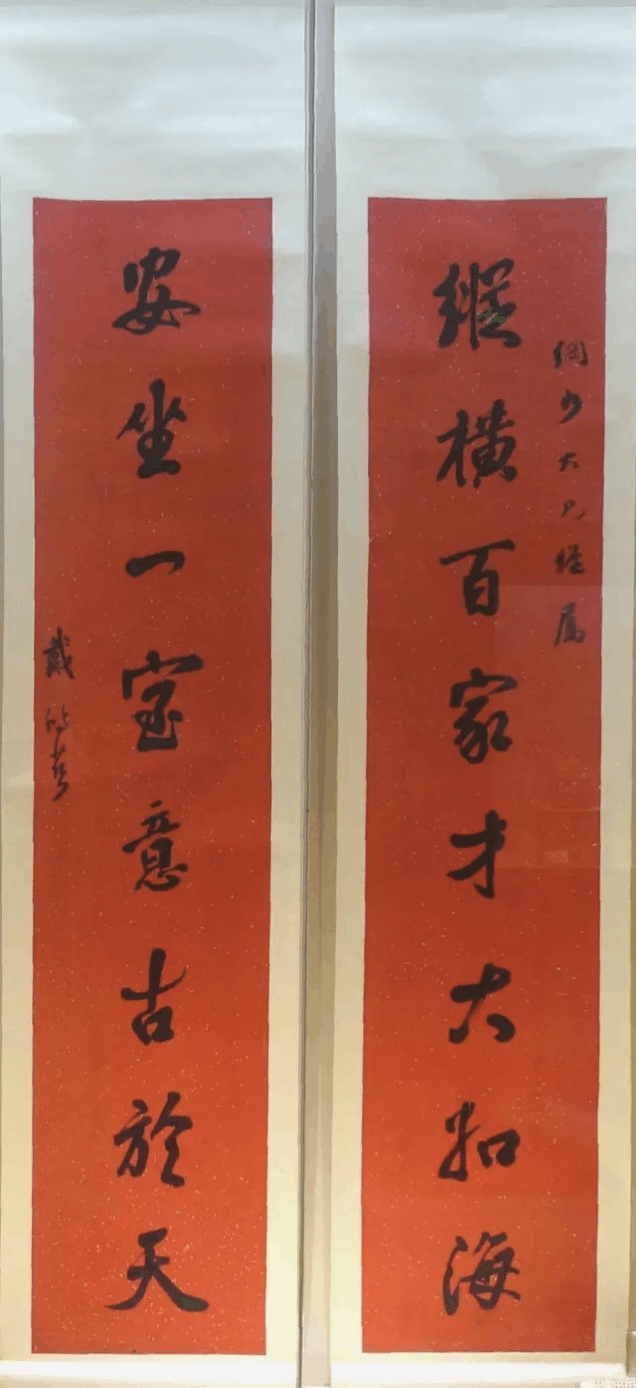 縱橫百家才大如海
綱少大兄經屬
安坐一室意古於天
戴鴻慈